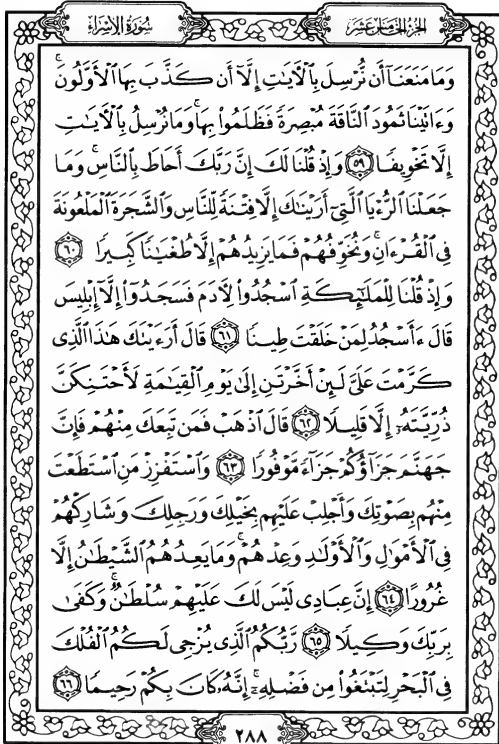 الجزء الخامس عشر
سورة الإسراء
وَمَا مَنَعَنَآ أَن نُّرْسِلَ بِٱلْءَايَٰتِ إِلَّآ أَن كَذَّبَ بِهَا ٱلْأَوَّلُونَۚ
وَءَاتَيْنَا ثَمُودَ ٱلنَّاقَةَ مُبْصِرَةً فَظَلَمُوا۟ بِهَاۚ وَمَا نُرْسِلُ بِٱلْءَايَٰتِ
إِلَّا تَخْوِيفًا ٥٩ وَإِذْ قُلْنَا لَكَ إِنَّ رَبَّكَ أَحَاطَ بِٱلنَّاسِۚ وَمَا
جَعَلْنَا ٱلرُّءْيَا ٱلَّتِىٓ أَرَيْنَٰكَ إِلَّا فِتْنَةً لِّلنَّاسِ وَٱلشَّجَرَةَ ٱلْمَلْعُونَةَ
فِى ٱلْقُرْءَانِۚ وَنُخَوِّفُهُمْ فَمَا يَزِيدُهُمْ إِلَّا طُغْيَٰنًا كَبِيرًا ٦٠
وَإِذْ قُلْنَا لِلْمَلَٰٓئِكَةِ ٱسْجُدُوا۟ لِءَادَمَ فَسَجَدُوٓا۟ إِلَّآ إِبْلِيسَ
قَالَ ءَأَسْجُدُ لِمَنْ خَلَقْتَ طِينًا ٦١ قَالَ أَرَءَيْتَكَ هَٰذَا ٱلَّذِى
كَرَّمْتَ عَلَىَّ لَئِنْ أَخَّرْتَنِ إِلَىٰ يَوْمِ ٱلْقِيَٰمَةِ لَأَحْتَنِكَنَّ
ذُرِّيَّتَهُۥٓ إِلَّا قَلِيلًا ٦٢ قَالَ ٱذْهَبْ فَمَن تَبِعَكَ مِنْهُمْ فَإِنَّ
جَهَنَّمَ جَزَآؤُكُمْ جَزَآءً مَّوْفُورًا ٦٣ وَٱسْتَفْزِزْ مَنِ ٱسْتَطَعْتَ
مِنْهُم بِصَوْتِكَ وَأَجْلِبْ عَلَيْهِم بِخَيْلِكَ وَرَجِلِكَ وَشَارِكْهُمْ
فِى ٱلْأَمْوَٰلِ وَٱلْأَوْلَٰدِ وَعِدْهُمْۚ وَمَا يَعِدُهُمُ ٱلشَّيْطَٰنُ إِلَّا
غُرُورًا ٦٤ إِنَّ عِبَادِى لَيْسَ لَكَ عَلَيْهِمْ سُلْطَٰنٌۚ وَكَفَىٰ
بِرَبِّكَ وَكِيلًا ٦٥ رَّبُّكُمُ ٱلَّذِى يُزْجِى لَكُمُ ٱلْفُلْكَ
فِى ٱلْبَحْرِ لِتَبْتَغُوا۟ مِن فَضْلِهِۦٓۚ إِنَّهُۥ كَانَ بِكُمْ رَحِيمًا ٦٦
٢٨٨